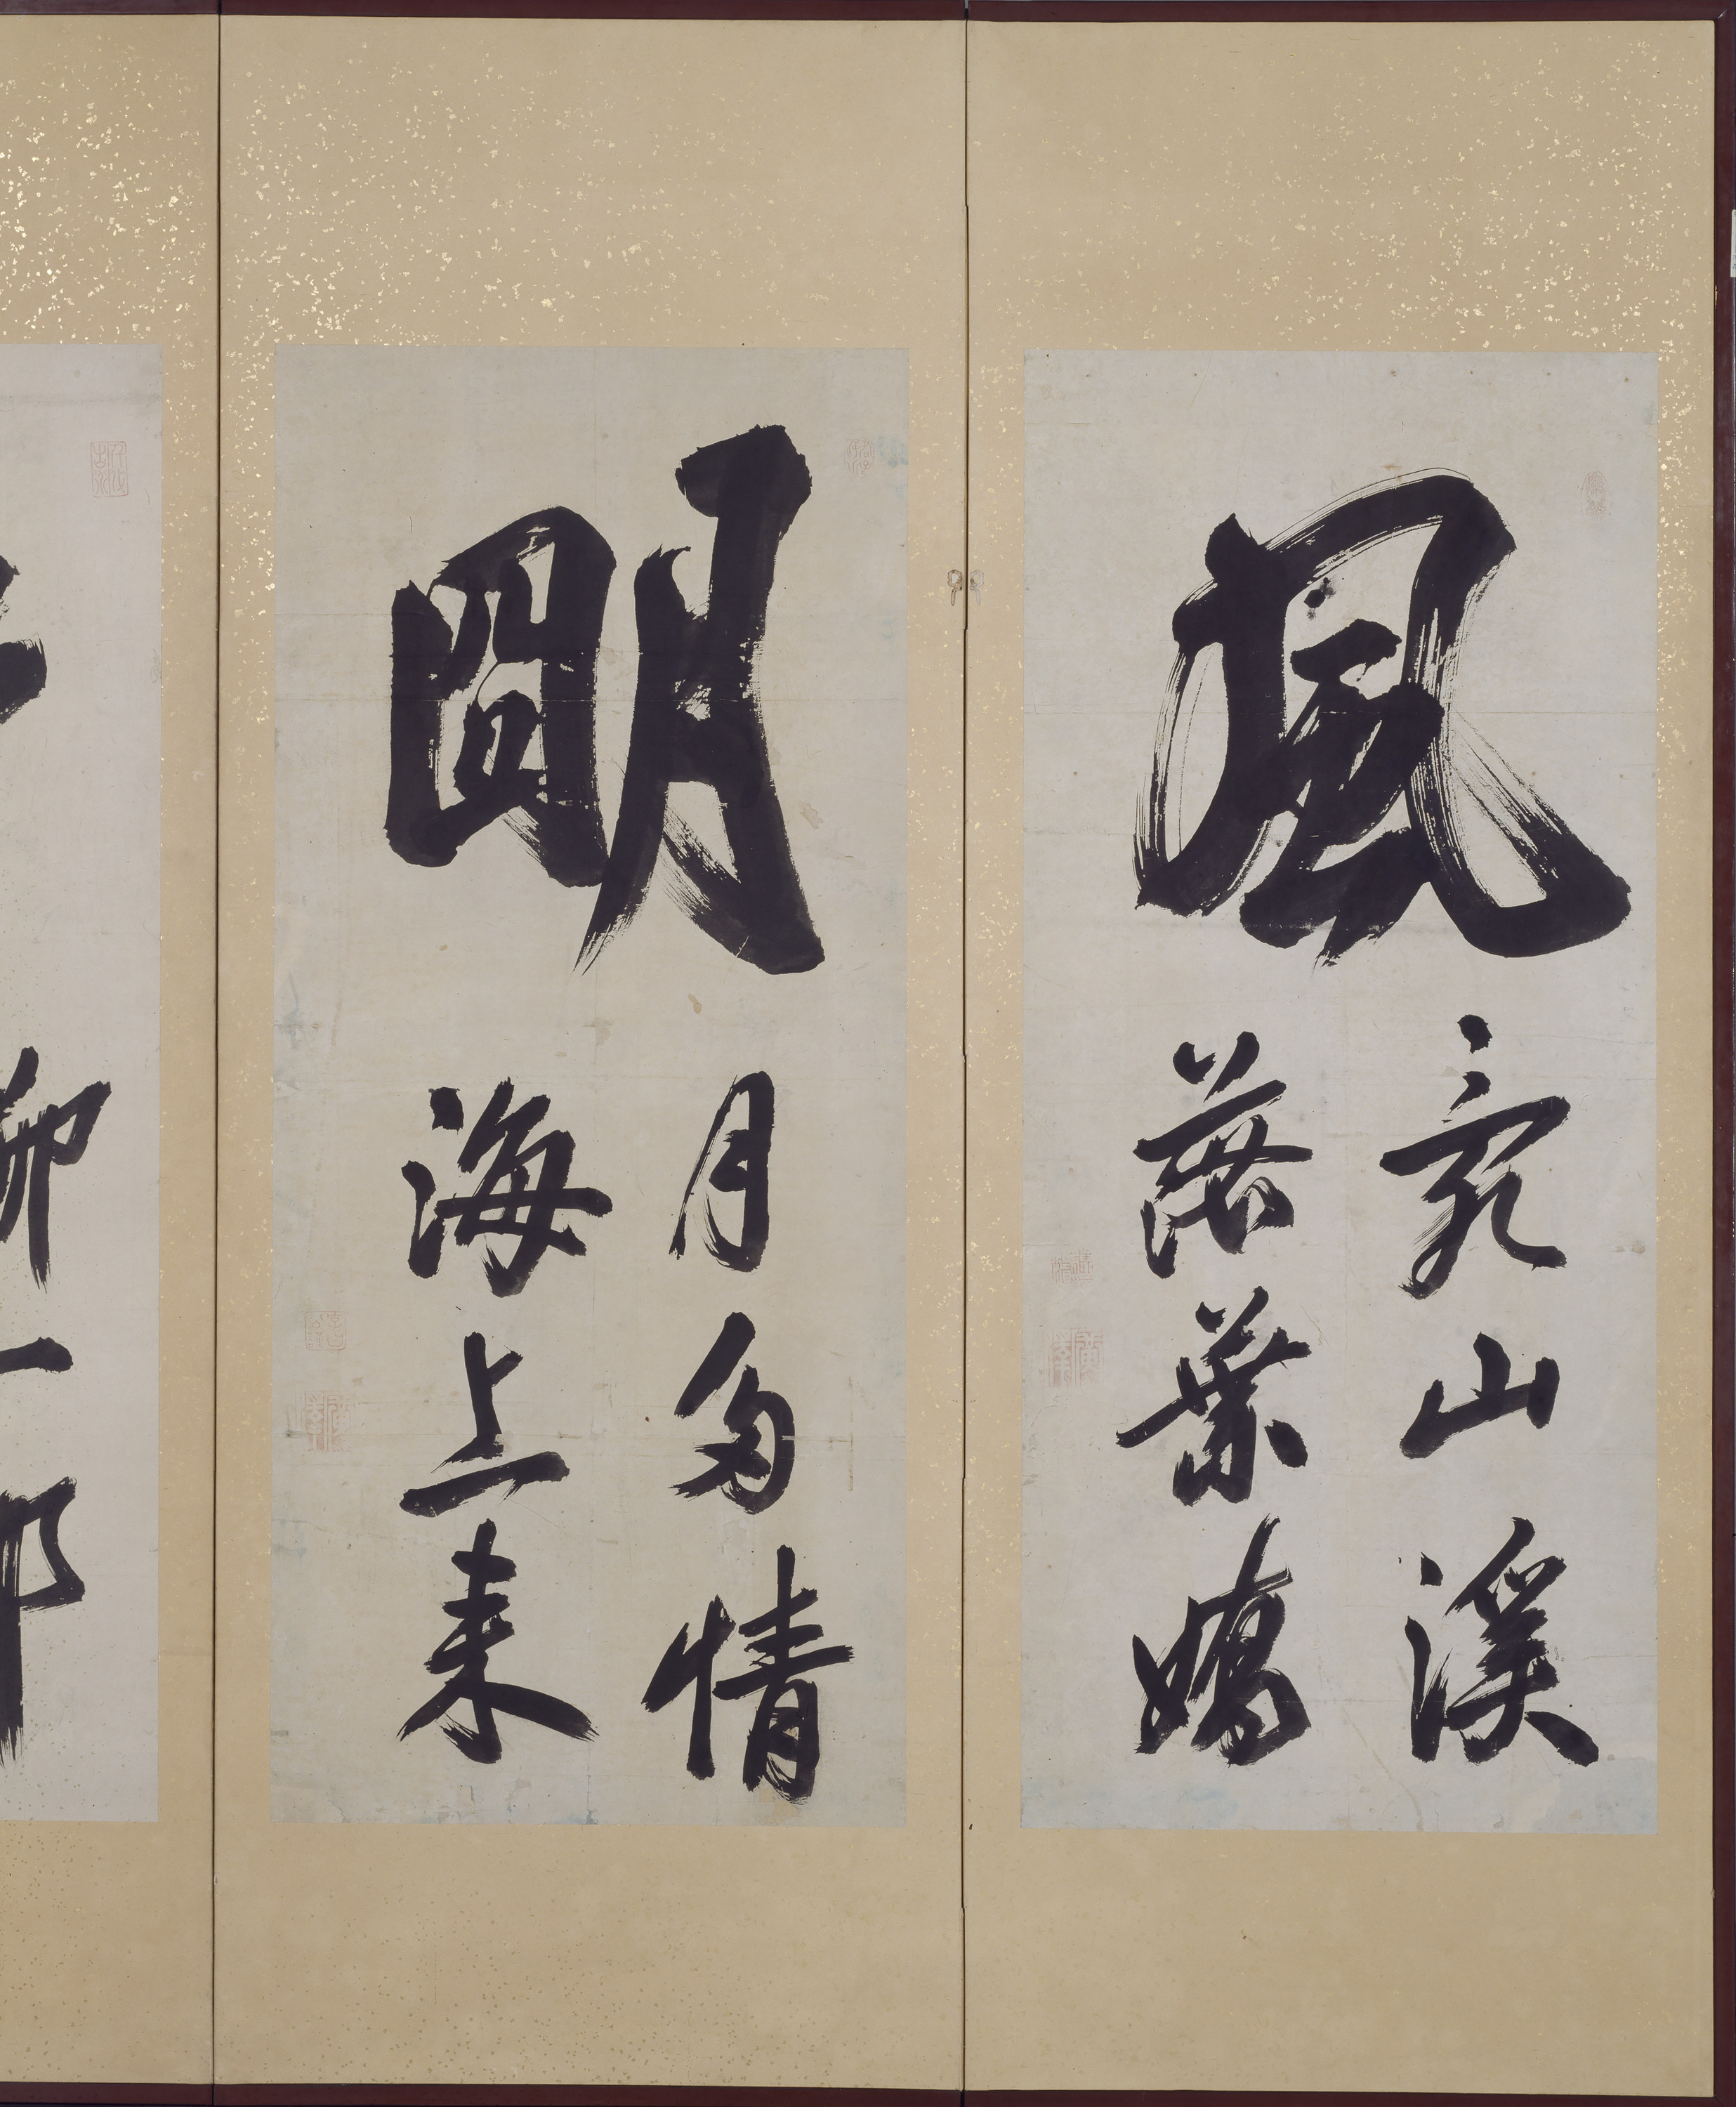 風
亮山溪
落葉嬌
明
月多情
海上来